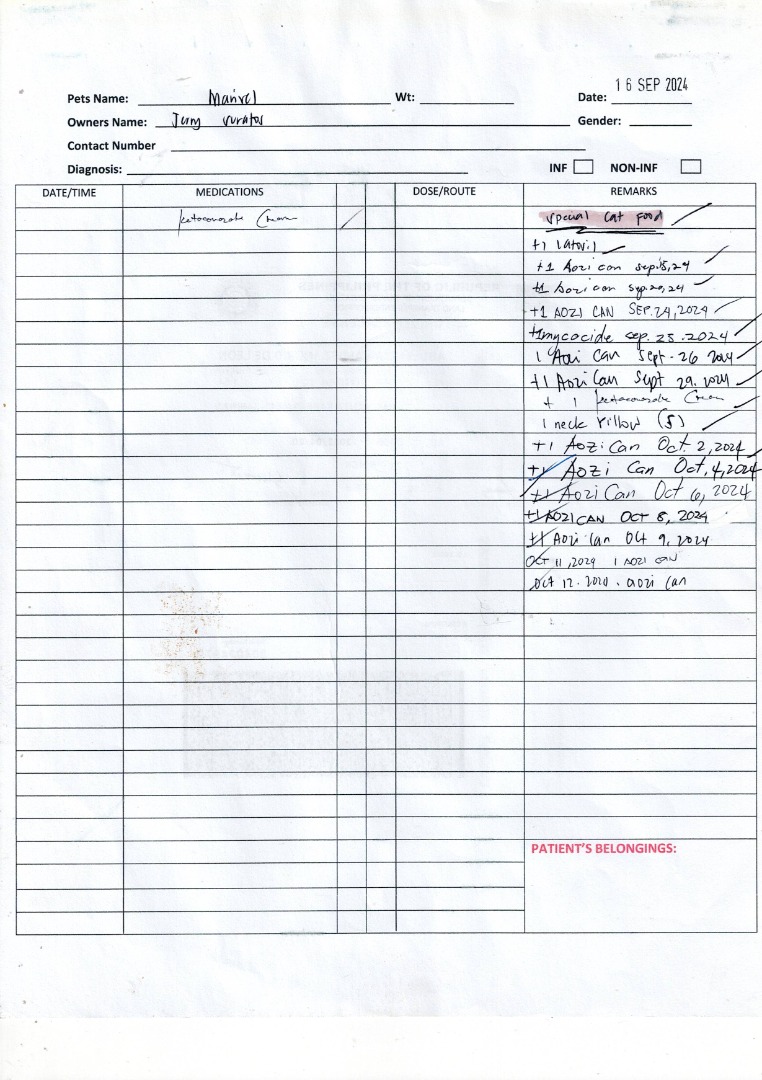 16 SEP 2024
Pets Name: Wt: Date:
Owners Name: Gender:
Contact Number
Diagnosis: INF NON-INF
DATE/TIME MEDICATIONS DOSE/ROUTE REMARKS
Cream special cat food
+1
+1 Aozi can sep.18,24
+1 Aozi can sep.20,24
+1 AOZI CAN SEP.24,2024
+1 mycocide sep. 25.2024
1 Aozi Can Sept. 26 2024
+1 Aozi Can Sept 29. 2024
+ 1 Cream
1 neck Pillow (S)
+1 Aozi Can Oct. 2,2024
+1 Aozi Can Oct, 4,2024
+1 Aozi Can Oct 6, 2024
+1 AOZI CAN OCT 8, 2024
+1 Aozi Can Oct 9, 2024
OCT 11,2024 1 AOZI CAN
Oct 12. . aozi Can
PATIENT'S BELONGINGS: